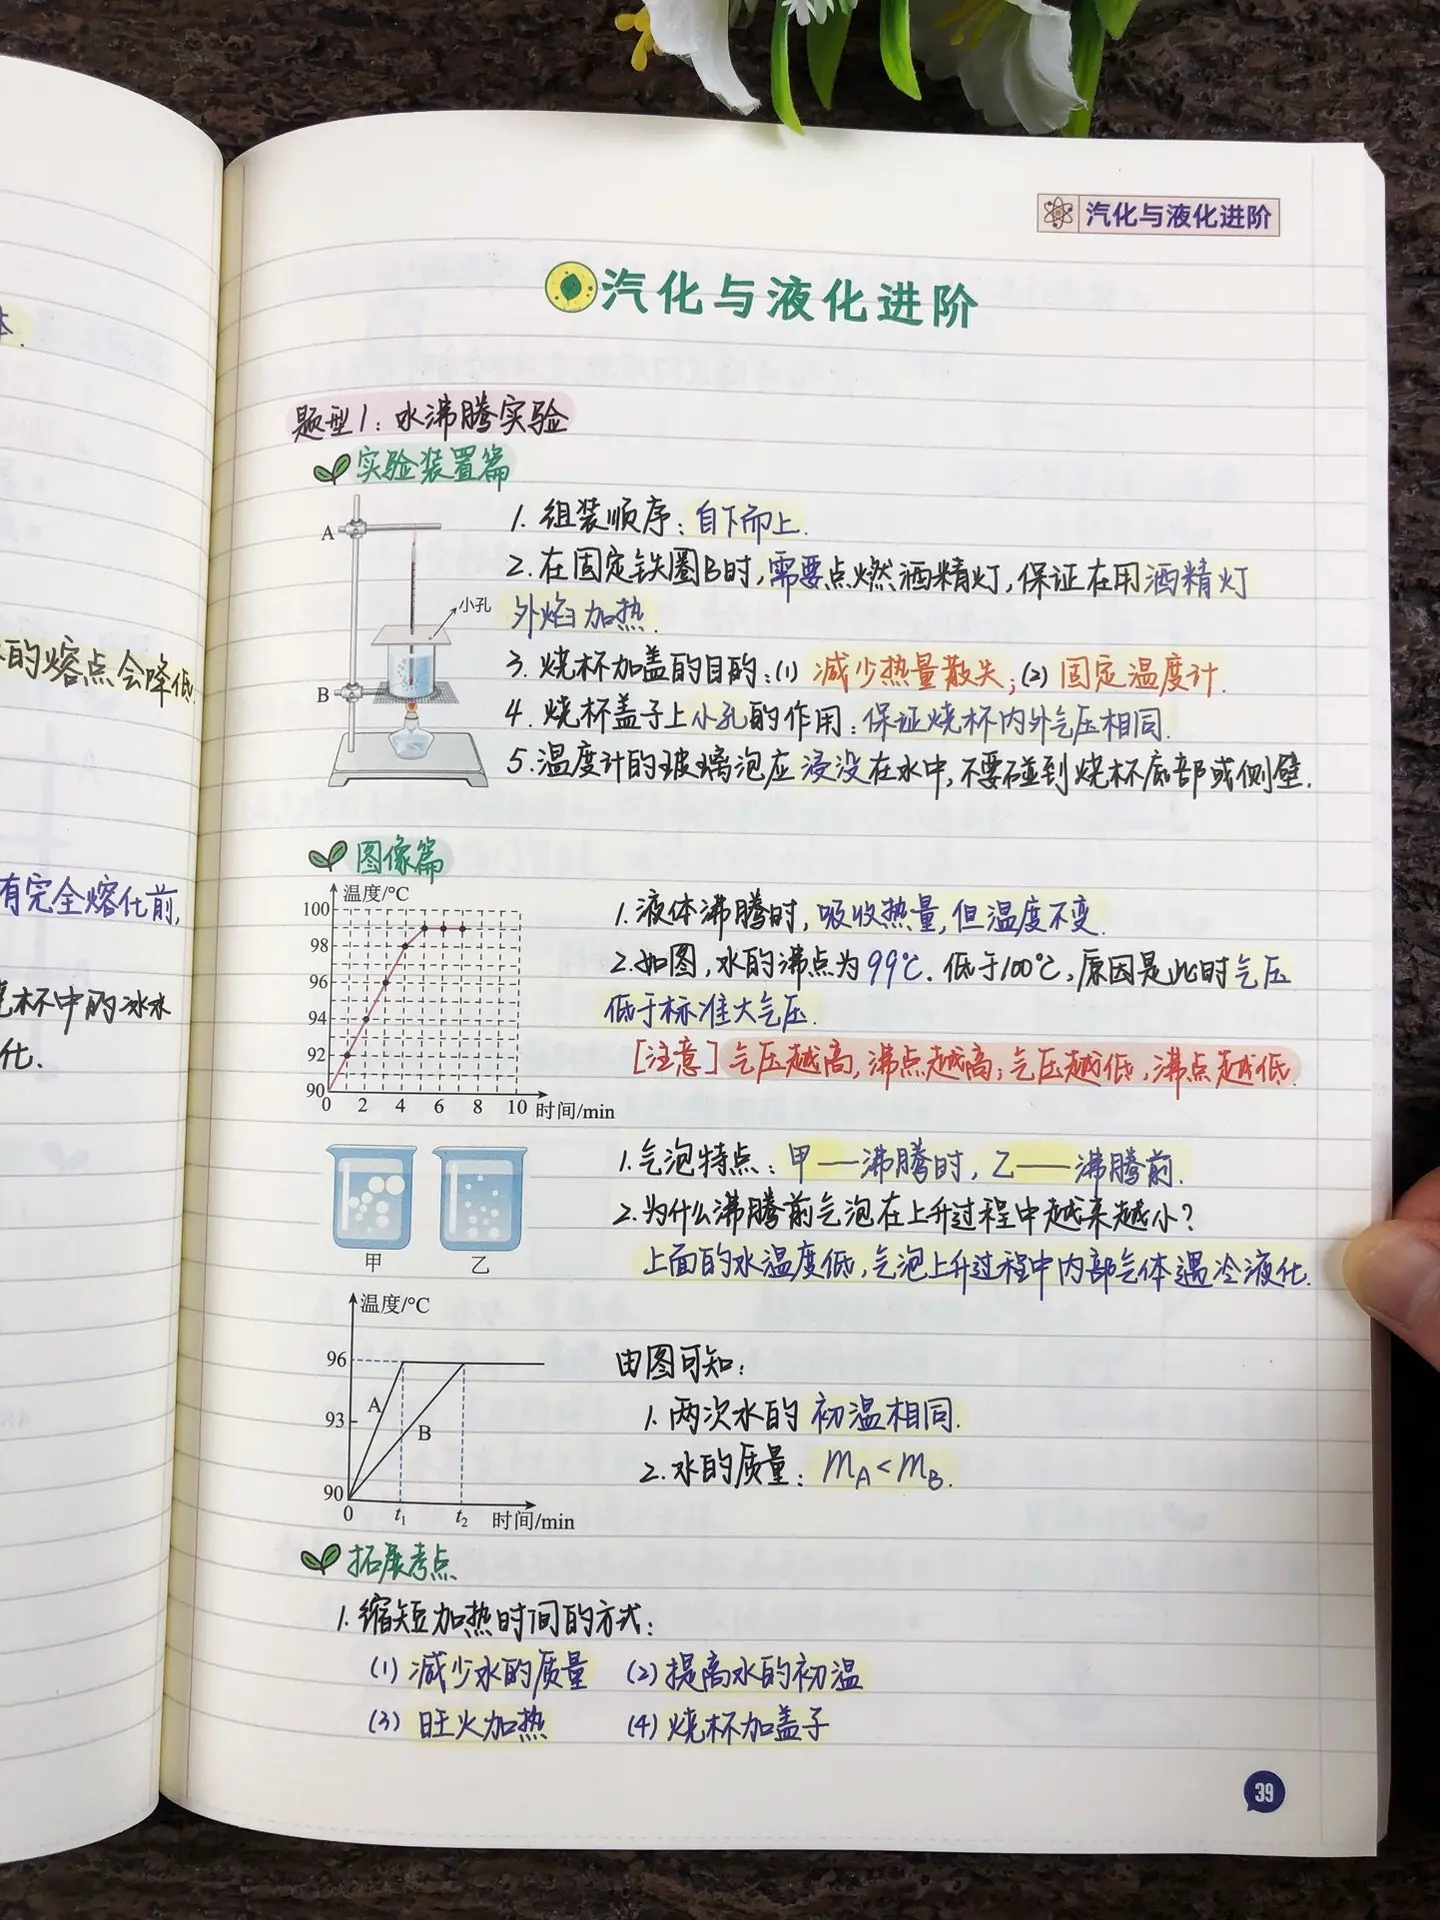 体.
的熔点会降低
有完全熔化前,
烧杯中的冰水
化.
汽化与液化进阶
汽化与液化进阶
题型1: 水沸腾实验
实验装置篇
A
小孔
B
1. 组装顺序: 自下而上.
2. 在固定铁圈B时, 需要点燃酒精灯, 保证在用酒精灯
外焰加热.
3. 烧杯加盖的目的: (1) 减少热量散失; (2) 固定温度计.
4. 烧杯盖子上小孔的作用: 保证烧杯内外气压相同.
5. 温度计的玻璃泡应浸没在水中, 不要碰到烧杯底部或侧壁.
图像篇
温度/°C
100
98
96
94
92
90
0 2 4 6 8 10 时间/min
1. 液体沸腾时, 吸收热量, 但温度不变.
2. 如图, 水的沸点为99℃. 低于100℃, 原因是此时气压
低于标准大气压.
[注意] 气压越高, 沸点越高; 气压越低, 沸点越低.
甲 乙
1. 气泡特点: 甲——沸腾时, 乙——沸腾前.
2. 为什么沸腾前气泡在上升过程中越来越小?
上面的水温度低, 气泡上升过程中内部气体遇冷液化.
温度/°C
96
A
93
B
90
0 t₁ t₂ 时间/min
由图可知:
1. 两次水的初温相同.
2. 水的质量: mA<mB.
拓展考点
1. 缩短加热时间的方式:
(1) 减少水的质量 (2) 提高水的初温
(3) 旺火加热 (4) 烧杯加盖子
39